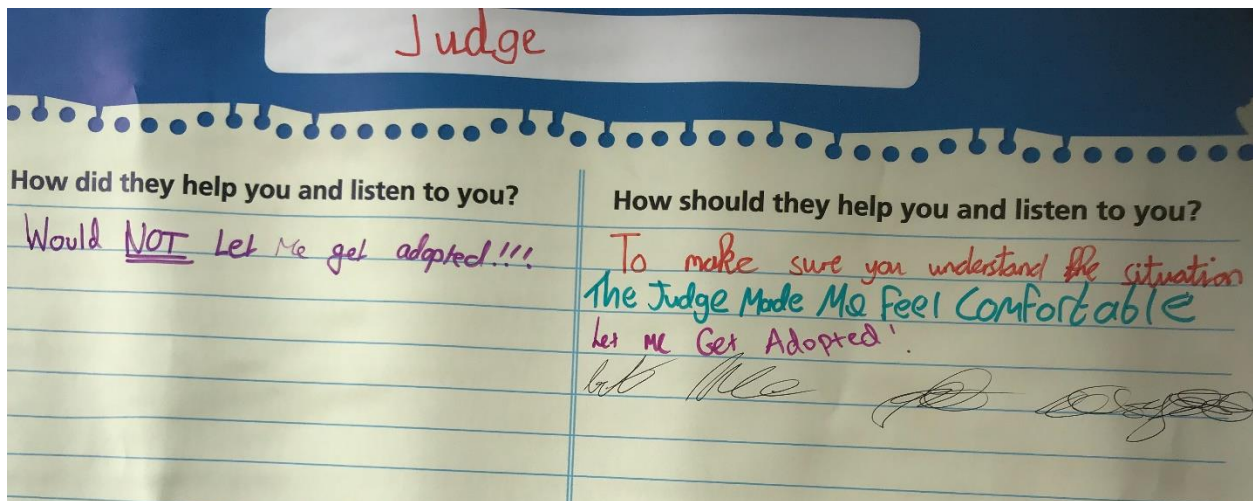 Judge
How did they help you and listen to you?
Would NOT Let Me get adopted!!!
How should they help you and listen to you?
To make sure you understand the situation
The Judge Made Me Feel Comfortable
Let me Get Adopted!